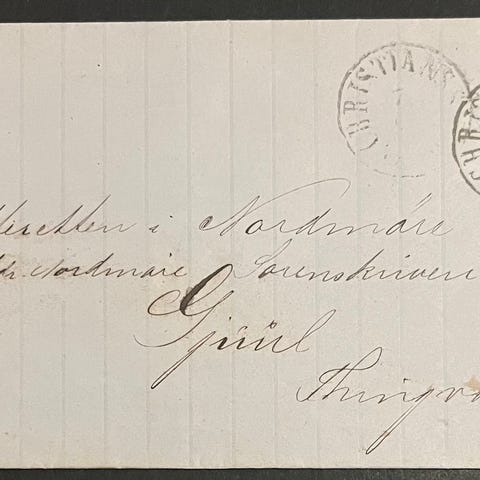 CHRISTIANS
CHRIS
retten i Nordmøre
Nordmøre Sorenskriveri
Gjüül
Thingvo